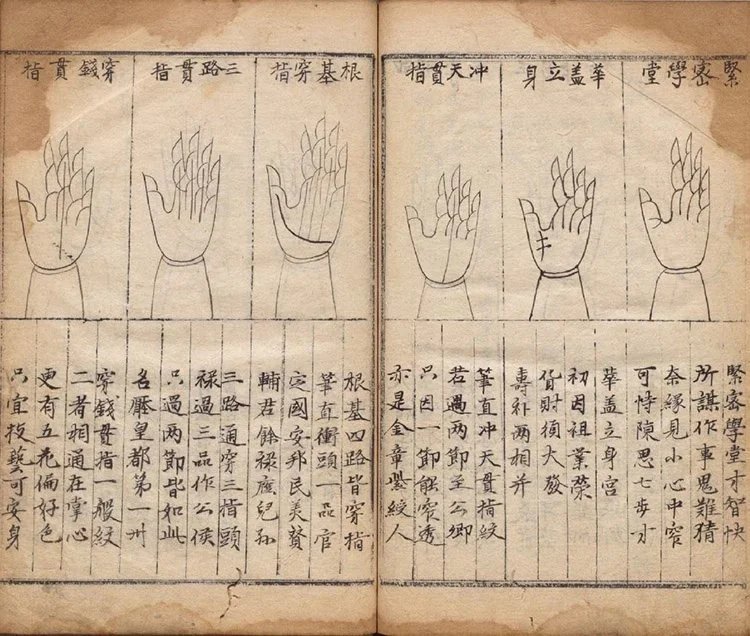 緊密學堂
華盖立身
冲天貫指
緊密學堂才智快
所謀作事鬼難猜
奈緣見小心中窄
可恃陳思七步才
華盖立身宮
初因祖業榮
貨財須大發
壽两相并
筆直冲天貫指紋
若過两節至公卿
只因一節能穿透
亦是金章紫人
根基穿指
三路貫指
穿錢貫指
根基四路皆穿指
筆直衝頭一品官
定國安邦民美贊
輔君餘祿廕兒孫
三路通穿三指頭
祿過三品作公侯
只過两節皆如此
名壓皇都第一州
穿錢貫指一般紋
二者相通在掌心
更有五花偏好色
只宜技藝可安身